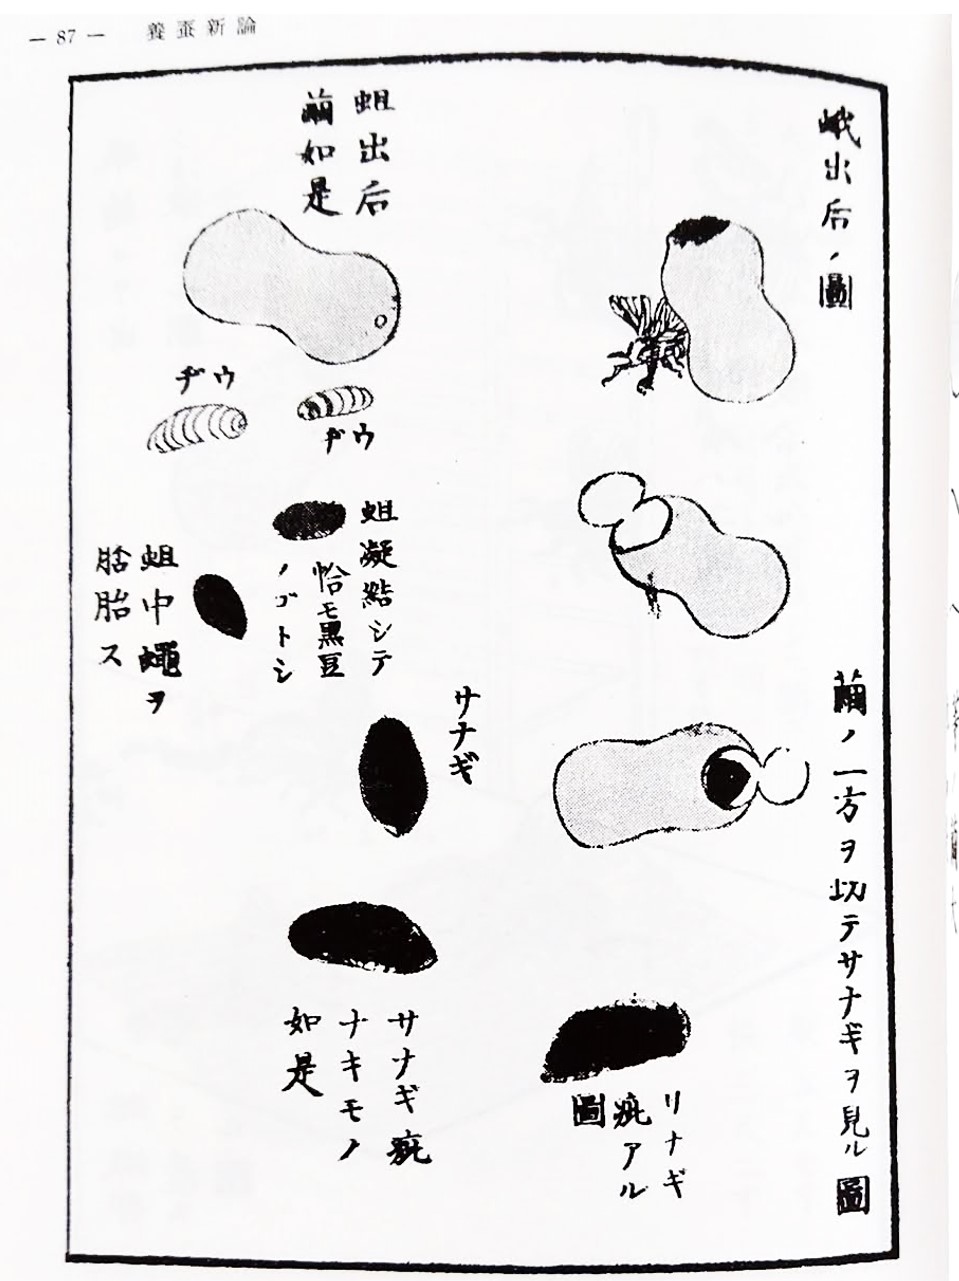 — 87 —　養蚕新論
蛾出后ノ圖
繭ノ一方ヲ切テサナギヲ見ル圖
サナギ
疵アル
圖
蛆出后
繭如是
ヂウ
ヂウ
蛆凝結シテ
恰モ黒豆
ノゴトシ
蛆中蠅ヲ
胎ス
サナギ
サナギ疵
ナキモノ
如是